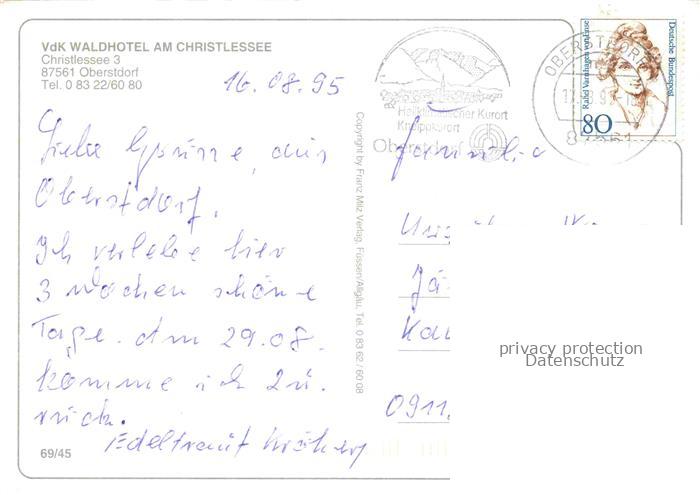 VdK WALDHOTEL AM CHRISTLESSEE
Christlessee 3
87561 Oberstdorf
Tel. 0 83 22/60 80
16.08.95
Liebe Grüsse aus
Oberstdorf.
Ich verlebe hier
3 Wochen schöne
Tage. Am 29.08.
komme ich zu.
rück.
Edeltraut
69/45
Copyright by Franz Milz Verlag, Füssen/Allgäu, Tel. 0 83 62 / 60 08
Heilklimatischer Kurort
Kneippkurort
Oberstdorf
OBERSTDORF
Rahel Varnhagen von Ense
Deutsche Bundespost
80
Familie
0911.
privacy protection
Datenschutz